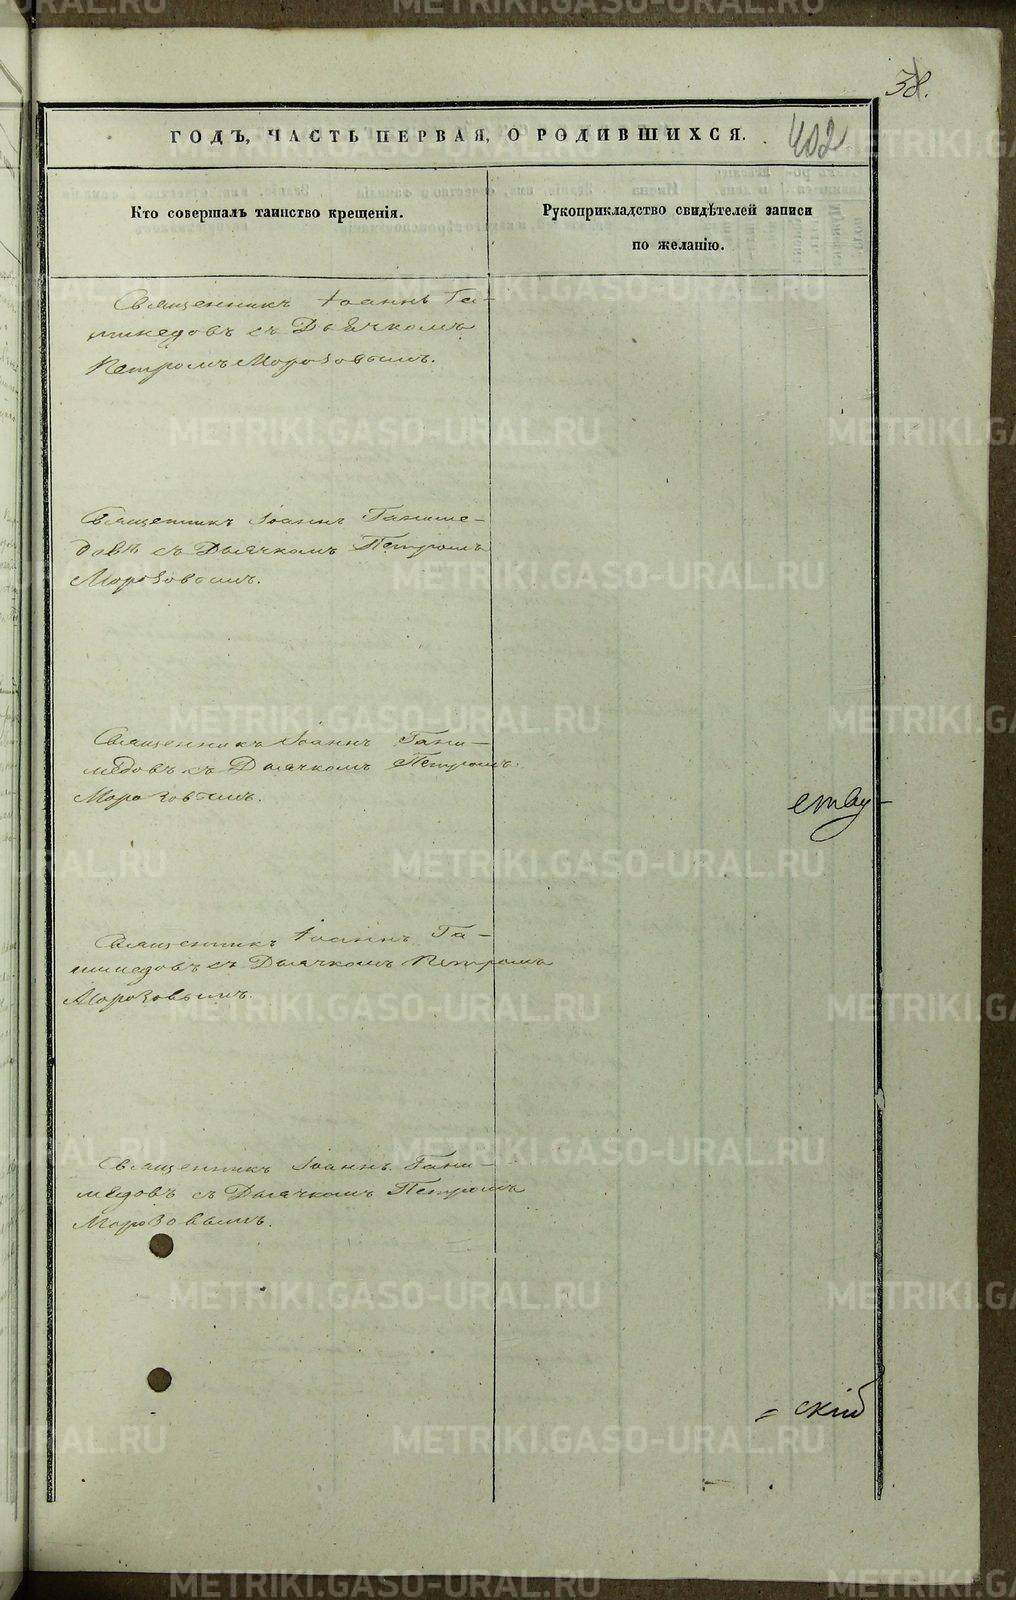 38.
ГОДЪ, ЧАСТЬ ПЕРВАЯ, О РОДИВШИХСЯ.
402
Кто совершалъ таинство крещенія.
Рукоприкладство свидѣтелей записи
по желанію.
Священникъ Іоаннъ Га-
нимедовъ съ Дьячкомъ
Петромъ Морозовымъ.
Священникъ Іоаннъ Ганиме-
довъ съ Дьячкомъ Петромъ
Морозовымъ.
Священникъ Іоаннъ Гани-
медовъ съ Дьячкомъ Петромъ
Морозовымъ.
ству-
Священникъ Іоаннъ Га-
нимедовъ съ Дьячкомъ Петромъ
Морозовымъ.
Священникъ Іоаннъ Гани-
медовъ съ Дьячкомъ Петромъ
Морозовымъ.
= скій
METRIKI.GASO-URAL.RU